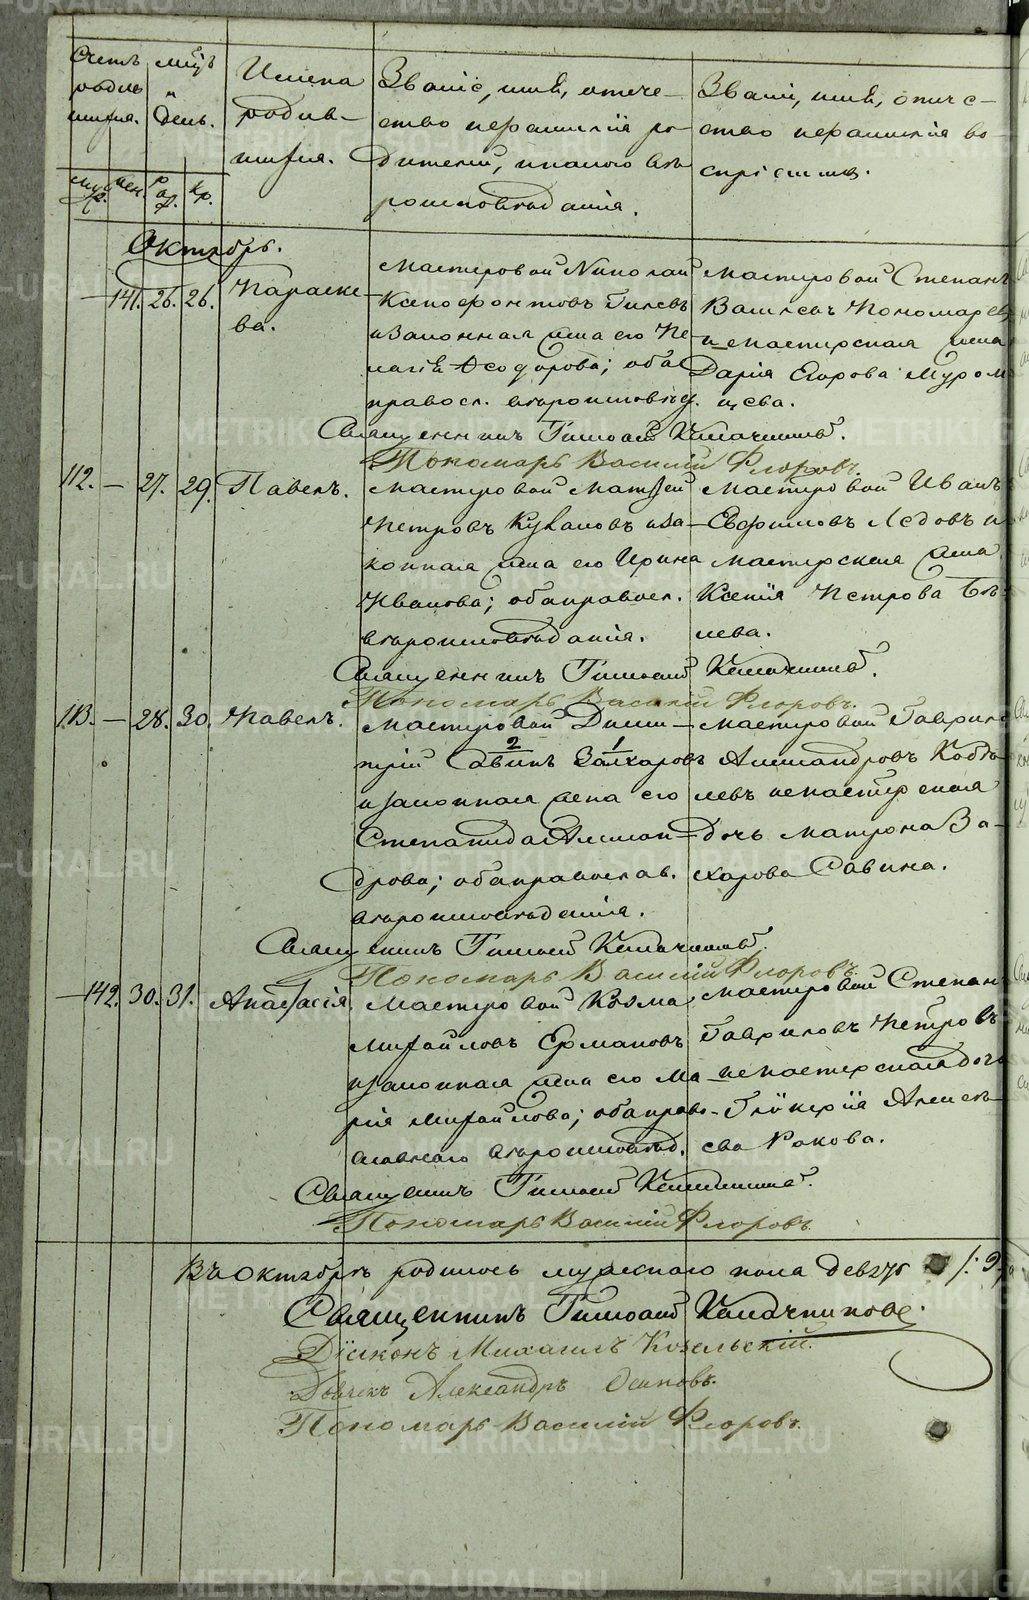 Счетъ родив шихся.
мцъ и День.
Имена родив- шихся.
Званіе, имя, отече- ство и фамилія ро- дителей, и какого вѣ роисповѣданія.
Званіе, имя, отчес- ство и фамилія во- спріемник.
муж. жен. Рож. Кр.
Октябрь.
— 141. 26. 26. Параске- ва.
Мастеровой Николай
Ксенофонтовъ Гилевъ
и законная жена его Пе-
лагія Ѳеодорова; оба
правосл. вѣроисповѣд.
Мастеровой Степанъ
Васильевъ Пономарев
и мастерская жена
Дарія Егорова Муром
цева.
Священникъ Тимоѳей Калачниковъ.
Пономарь Василій Флоровъ.
112. — 27. 29. Павелъ.
Мастеровой Матѳей
Петровъ и за-
конная жена его Ирина
Иванова; оба правосл.
вѣроисповѣданія.
Мастеровой Иванъ
Евфимовъ Ледовъ и
мастерская жена
Ксенія Петрова Бѣ-
лева.
Священникъ Тимоѳей Калачниковъ.
Пономарь Василій Флоровъ.
113. — 28. 30. Павелъ.
Мастеровой Дими-
трій Савинъ 2 Захаровъ 1
и законная жена его
Степанида Алексан-
дрова; оба православ.
вѣроисповѣданія.
Мастеровой Гаврило
Александровъ Кобя-
левъ и мастерская
дочь Матрона За-
харова Савина.
Священникъ Тимоѳей Калачниковъ.
Пономарь Василій Флоровъ.
— 142. 30. 31. Анастасія.
Мастеровой Козма
Михайловъ Ермаковъ
и законная жена его Ма-
рія Михайлова; оба право-
славнаго вѣроисповѣд.
Мастеровой Степанъ
Гавриловъ Петровъ
и мастерская дочь
Глікерія Алексѣ-
ева Рокова.
Священникъ Тимоѳей Калачниковъ.
Пономарь Василій Флоровъ.
Въ Октябрѣ родилось мужескаго пола девять /: 9.
Священникъ Тимоѳей Калачниковъ.
Діаконъ Михаилъ Козельскій.
Дьячекъ Александръ Осиповъ.
Пономарь Василій Флоровъ.
METRIKI.GASO-URAL.RU